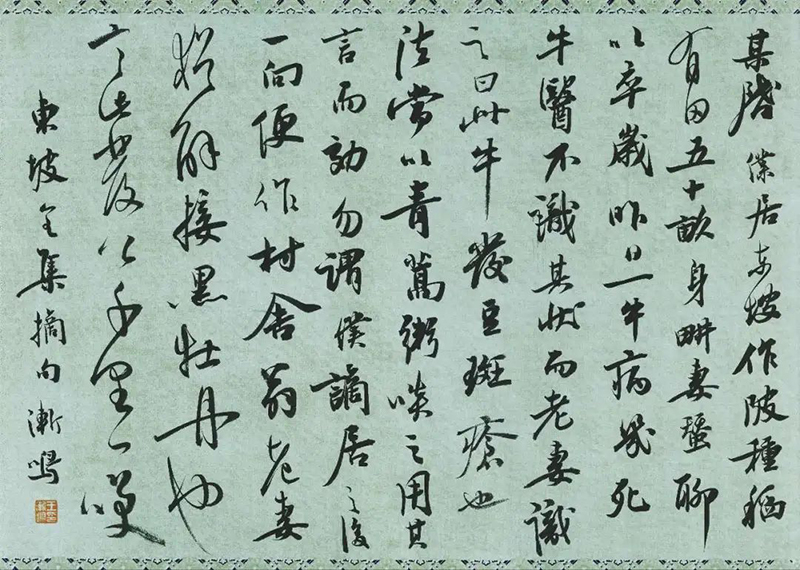 某啓僕居東坡作陂種稻
有田五十畝身畊妻蚕聊
以卒歲昨日一牛病幾死
牛醫不識其狀而老妻識
之曰此牛發豆斑瘡也
法當以青蒿粥啖之用其
言而効勿謂僕謫居之後
一向便作村舍翁老妻
猶解接黑牡丹也
言此發公千里一咲
東坡全集摘句漸鳴